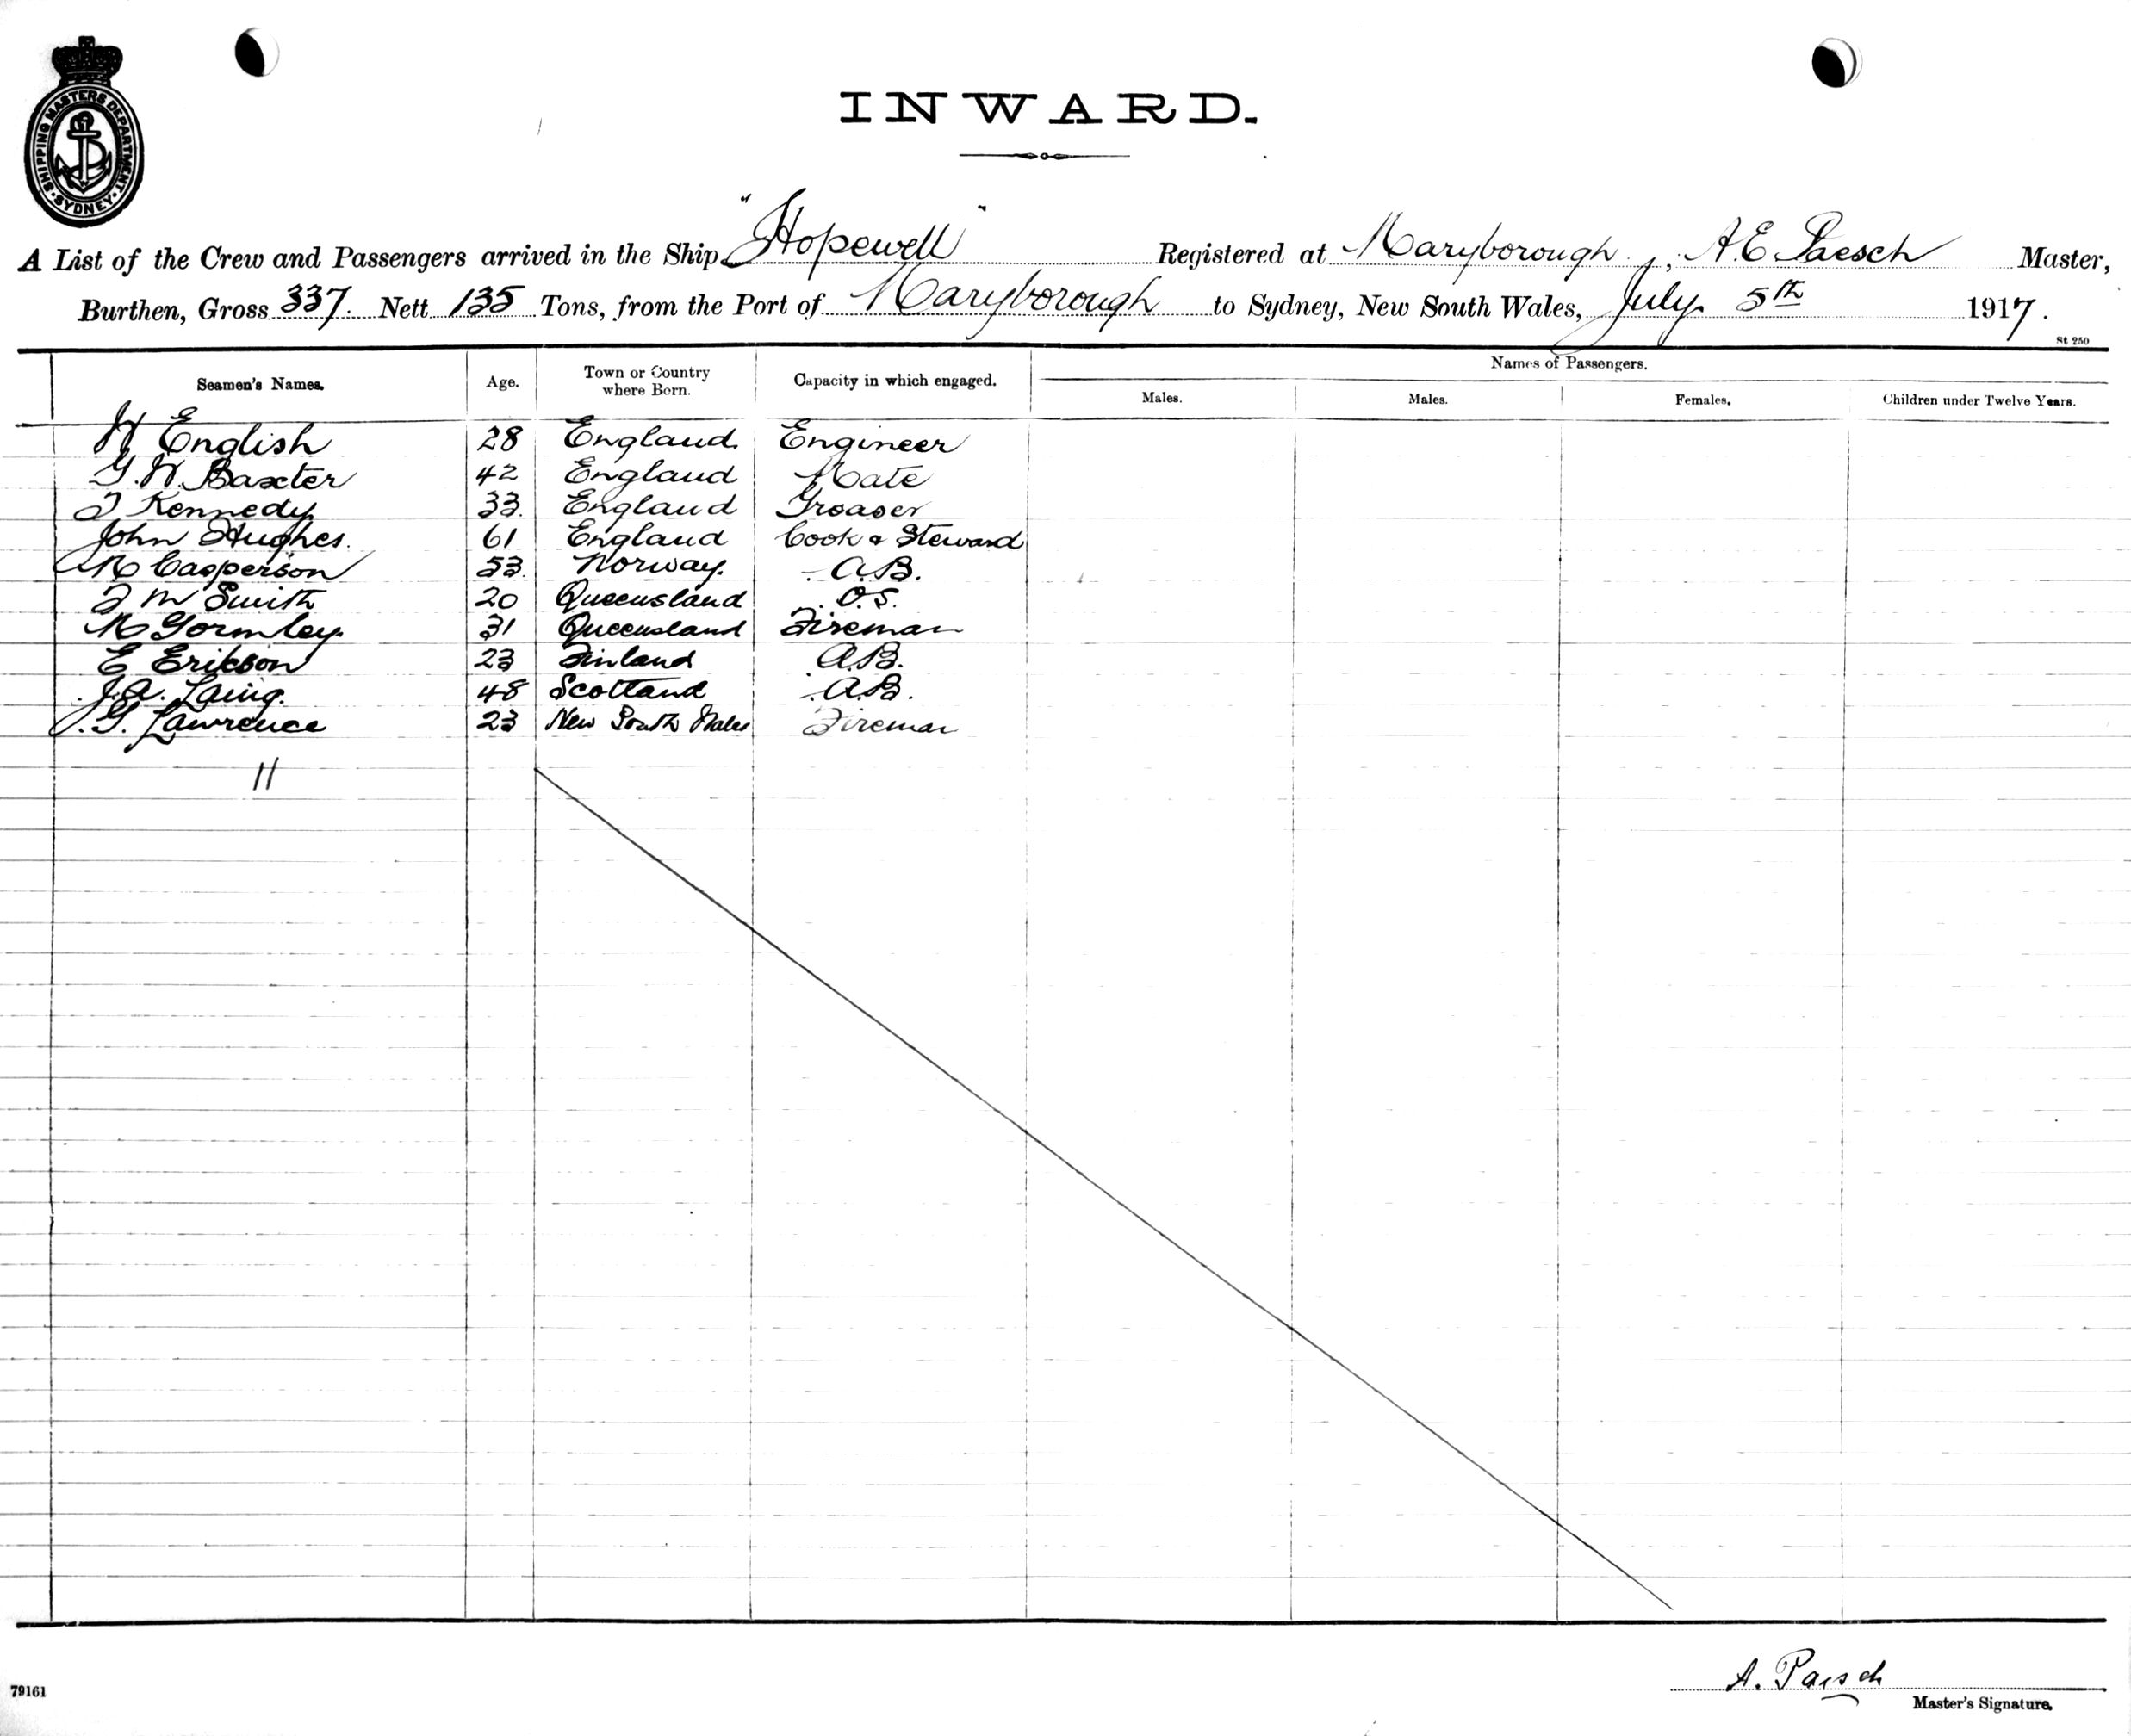 SHIPPING MASTERS DEPARTMENT
SYDNEY
INWARD.
A List of the Crew and Passengers arrived in the Ship "Hopewell" Registered at Maryborough, A.E. Paesch Master,
Burthen, Gross 337. Nett 135 Tons, from the Port of Maryborough to Sydney, New South Wales, July 5th 1917.
St 250
Seamen's Names. Age. Town or Country where Born. Capacity in which engaged. Names of Passengers.
Males. Males. Females. Children under Twelve Years.
H English 28 England Engineer
G. H. Baxter 42 England Mate
J Kennedy 33 England Greaser
John Hughes. 61 England Cook & Steward
K Casperson 53 Norway. A.B.
J M Smith 20 Queensland O.S.
M Gormley 31 Queensland Fireman
E Erikson 23 Finland A.B.
J.A. Laing. 48 Scotland A.B.
J. G. Lawrence 23 New South Wales Fireman
11
A. Paesch
Master's Signature.
79161